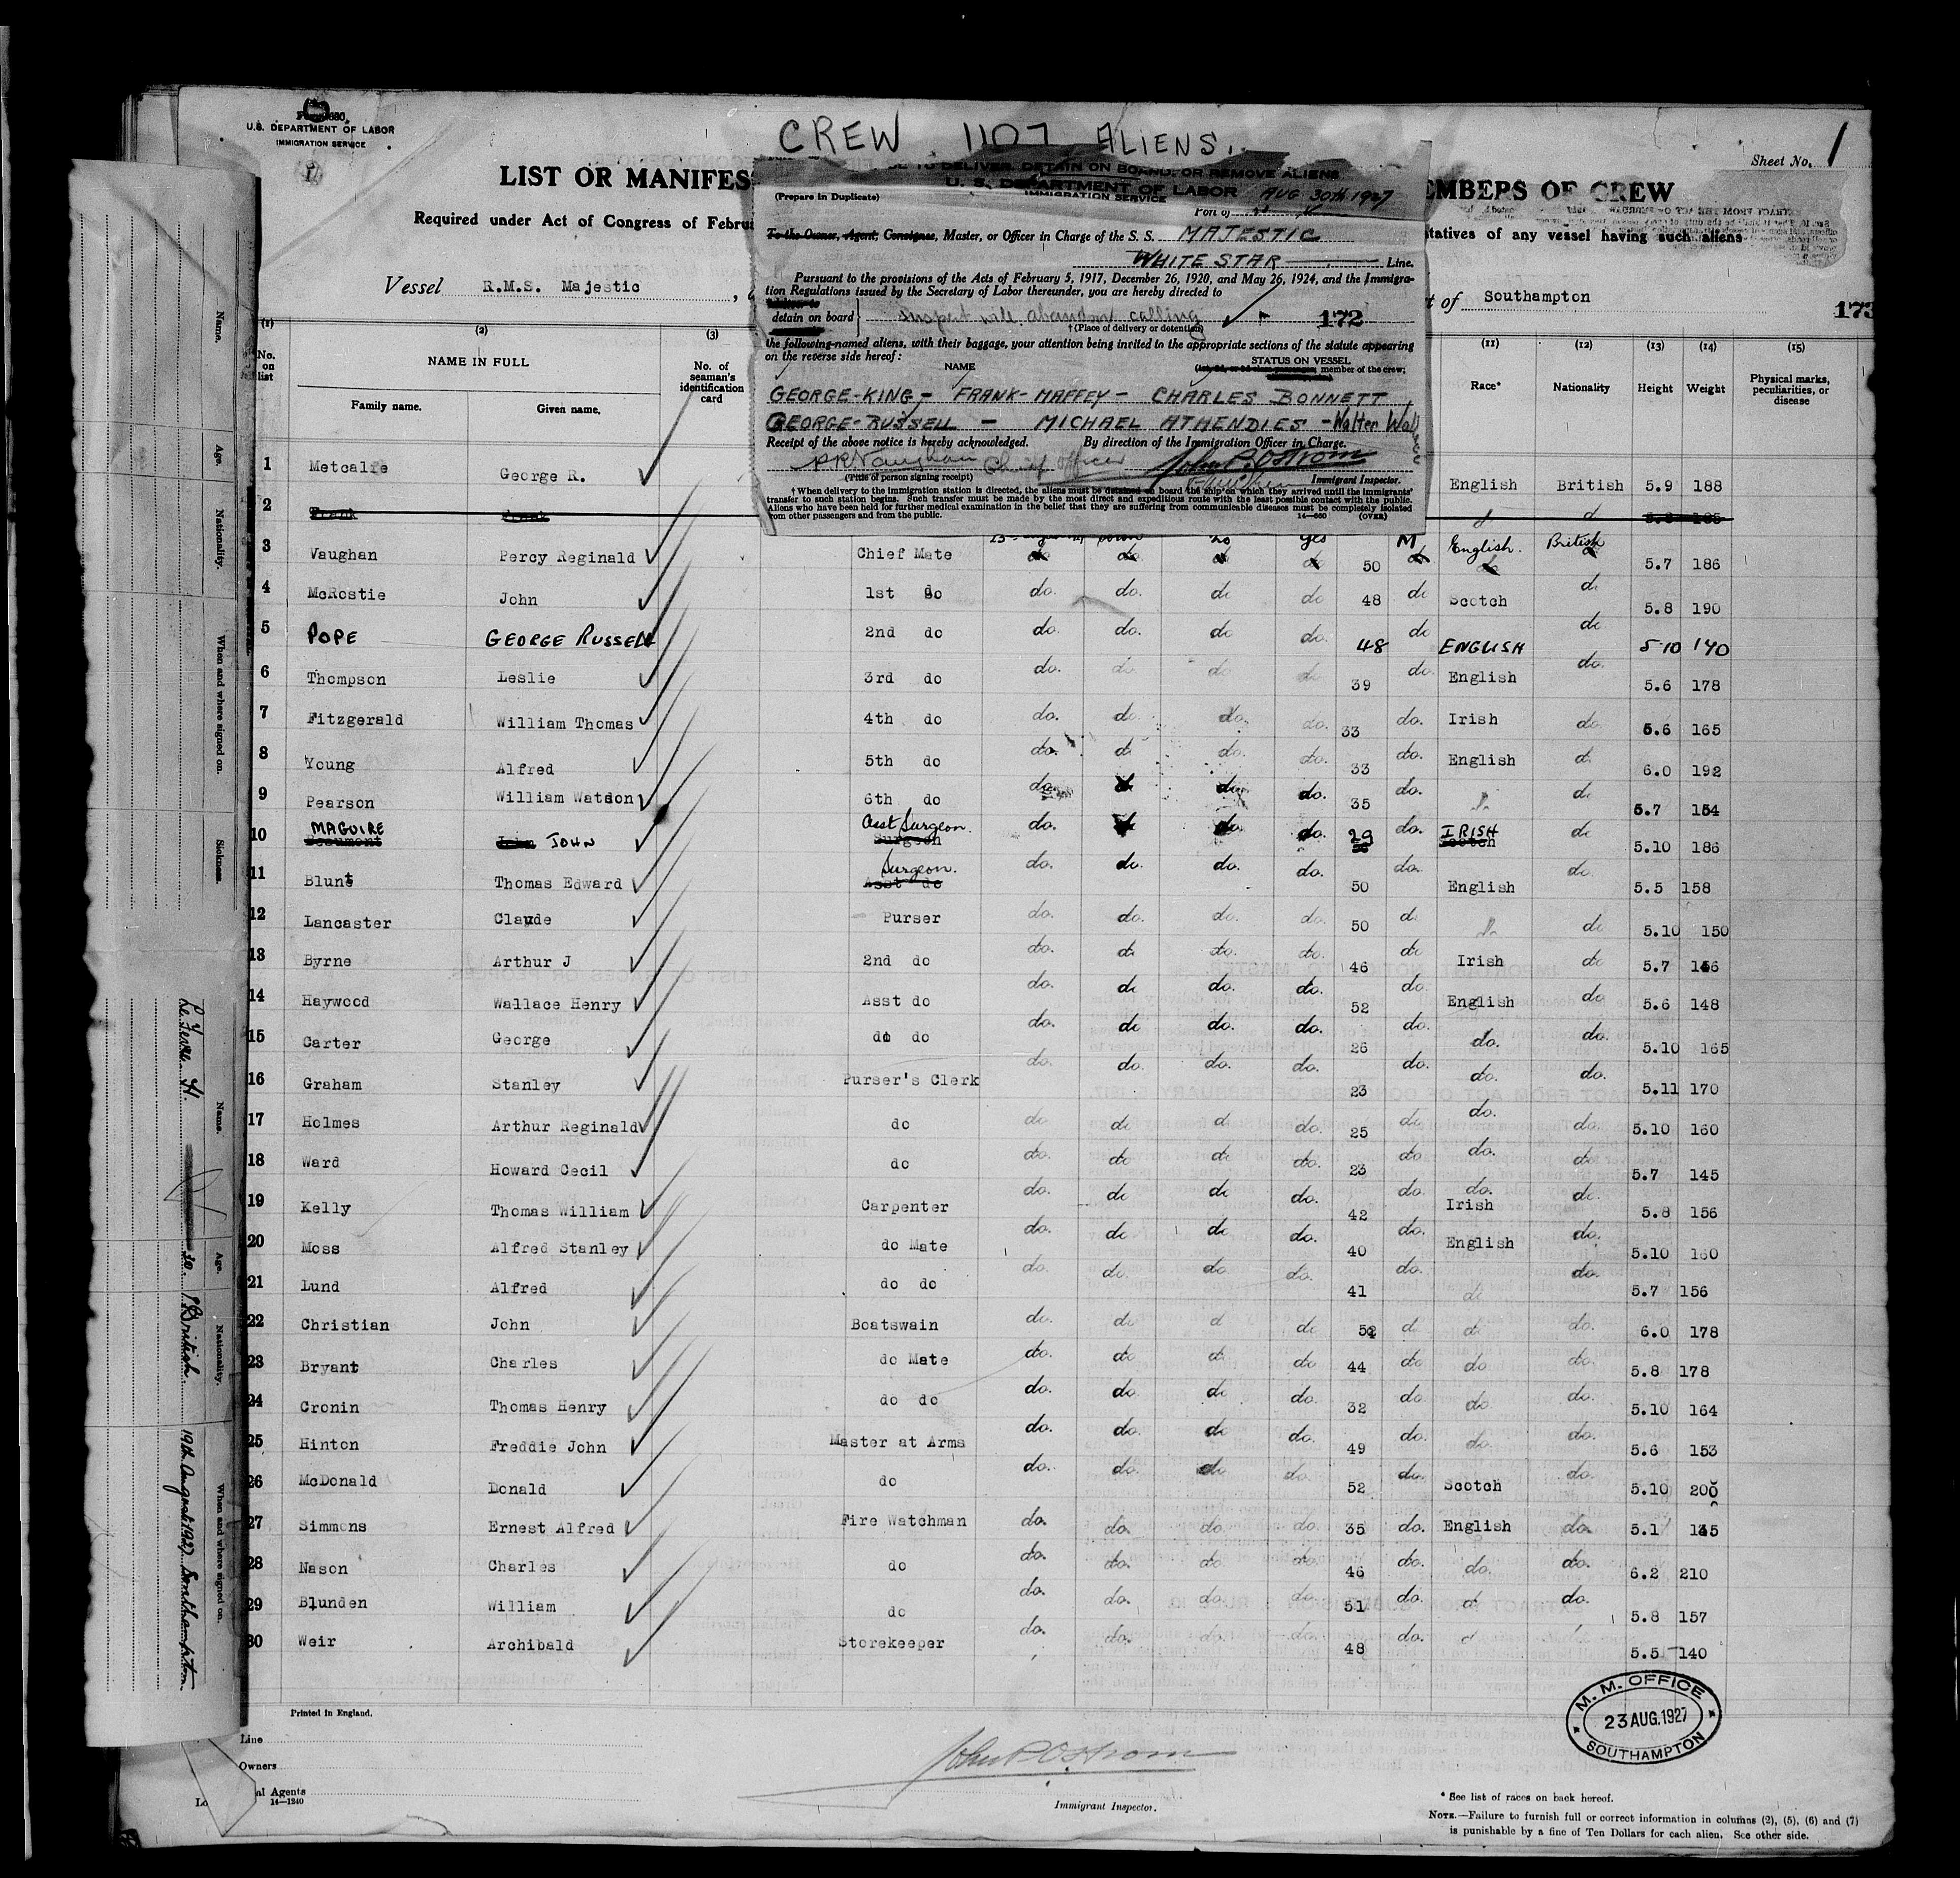 CREW 1107 ALIENS.
U.S. DEPARTMENT OF LABOR
IMMIGRATION SERVICE
Sheet No. 1
LIST OR MANIFES
EMBERS OF CREW
Required under Act of Congress of Februa
tatives of any vessel having such aliens
Vessel R.M.S. Majestic
t of Southampton
173
TO DELIVER, DETAIN ON BOARD, OR REMOVE ALIENS
U. S. DEPARTMENT OF LABOR
IMMIGRATION SERVICE
(Prepare in Duplicate)
AUG 30th 1927
Port of
To the Owner, Agent, Consignee, Master, or Officer in Charge of the S. S. MAJESTIC
WHITE STAR Line.
Pursuant to the provisions of the Acts of February 5, 1917, December 26, 1920, and May 26, 1924, and the Immigra-
tion Regulations issued by the Secretary of Labor thereunder, you are hereby directed to
detain on board
172
† (Place of delivery or detention)
the following-named aliens, with their baggage, your attention being invited to the appropriate sections of the statute appearing
on the reverse side hereof:
NAME
STATUS ON VESSEL
member of the crew;
GEORGE-KING - FRANK-MAFFEY - CHARLES BONNETT
GEORGE-RUSSELL - MICHAEL ATHENDIES - Walter
Receipt of the above notice is hereby acknowledged. By direction of the Immigration Officer in Charge.
PRVaughan Chief Officer John P. Ostrom
(Title of person signing receipt) Immigrant Inspector.
† When delivery to the immigration station is directed, the aliens must be detained on board the ship on which they arrived until the immigrants'
transfer to such station begins. Such transfer must be made by the most direct and expeditious route with the least possible contact with the public.
Aliens who have been held for further medical examination in the belief that they are suffering from communicable diseases must be completely isolated
from other passengers and from the public.
14—660 (OVER)
(1) (2) (3) (11) (12) (13) (14) (15)
No. on list
NAME IN FULL
Family name. Given name.
No. of seaman's identification card
Race* Nationality Height Weight Physical marks, peculiarities, or disease
1 Metcalfe George R. English British 5.9 188
2 Frank Frank
3 Vaughan Percy Reginald Chief Mate do. do. Yes 50 M English. British 5.7 186
4 McRostie John 1st do do. do. do do 48 do Scotch do 5.8 190
5 POPE GEORGE RUSSELL 2nd do do. do. do do. 48 do ENGLISH do 5 10 140
6 Thompson Leslie 3rd do do. do. do do 39 do. English do. 5.6 178
7 Fitzgerald William Thomas 4th do do. do. do. do. 33 do. Irish do. 5.6 165
8 Young Alfred 5th do do. do do. do. 33 do. English do. 6.0 192
9 Pearson William Watson 6th do do. do do. do. 35 do. do 5.7 154
10 MAGUIRE Beaumont JOHN Asst Surgeon. Surgeon do. do do. do. 29 do. IRISH Scotch do 5.10 186
11 Blunt Thomas Edward Surgeon. Asst do do. do. do. do. 50 do. English do. 5.5 158
12 Lancaster Claude Purser do. do. do. do. 50 do do 5.10 150
13 Byrne Arthur J 2nd do do. do do. do. 46 do Irish do 5.7 146
14 Haywood Wallace Henry Asst do do. do do. do. 52 do. English do. 5.6 148
15 Carter George do do do. do do. do. 26 do. do. do. 5.10 165
16 Graham Stanley Purser's Clerk do. do. do. do. 23 do. do. do. 5.11 170
17 Holmes Arthur Reginald do do do do do. 25 do. do. do. 5.10 160
18 Ward Howard Cecil do do. do do do. 23 do. do. do. 5.7 145
19 Kelly Thomas William Carpenter do. do do do. 42 do. do. Irish do. 5.8 156
20 Moss Alfred Stanley do Mate do. do do do. 40 do. English do. 5.10 160
21 Lund Alfred do do do. do. do do. 41 do. do do. 5.7 156
22 Christian John Boatswain do. do do do do do do. 6.0 178
23 Bryant Charles do Mate do. do do do 44 do do do. 5.8 178
24 Cronin Thomas Henry do do do. do. do do. 32 do. do. do. 5.10 164
25 Hinton Freddie John Master at Arms do. do. do do. 49 do. do. do. 5.6 153
26 McDonald Donald do do. do. do do. 52 do. Scotch do. 5.10 200
27 Simmons Ernest Alfred Fire Watchman do. do. do. do. 35 do. English do. 5.1 145
28 Nason Charles do do. do. do. do. 46 do. do. do. 6.2 210
29 Blunden William do do. do. do. do. 51 do. do do. 5.8 157
30 Weir Archibald Storekeeper do. do. do. do. 48 do. 5.5 140
Printed in England.
Line
Owners
al Agents
14—1240
John P. Ostrom
Immigrant Inspector.
M. M. OFFICE
23 AUG. 1927
SOUTHAMPTON
* See list of races on back hereof.
NOTE.—Failure to furnish full or correct information in columns (2), (5), (6) and (7)
is punishable by a fine of Ten Dollars for each alien. See other side.
Name. Age. Nationality. When and where signed on. Sickness.
Name. Age. Nationality. When and where signed on.
H. 30. British 19th August 1927 Southampton